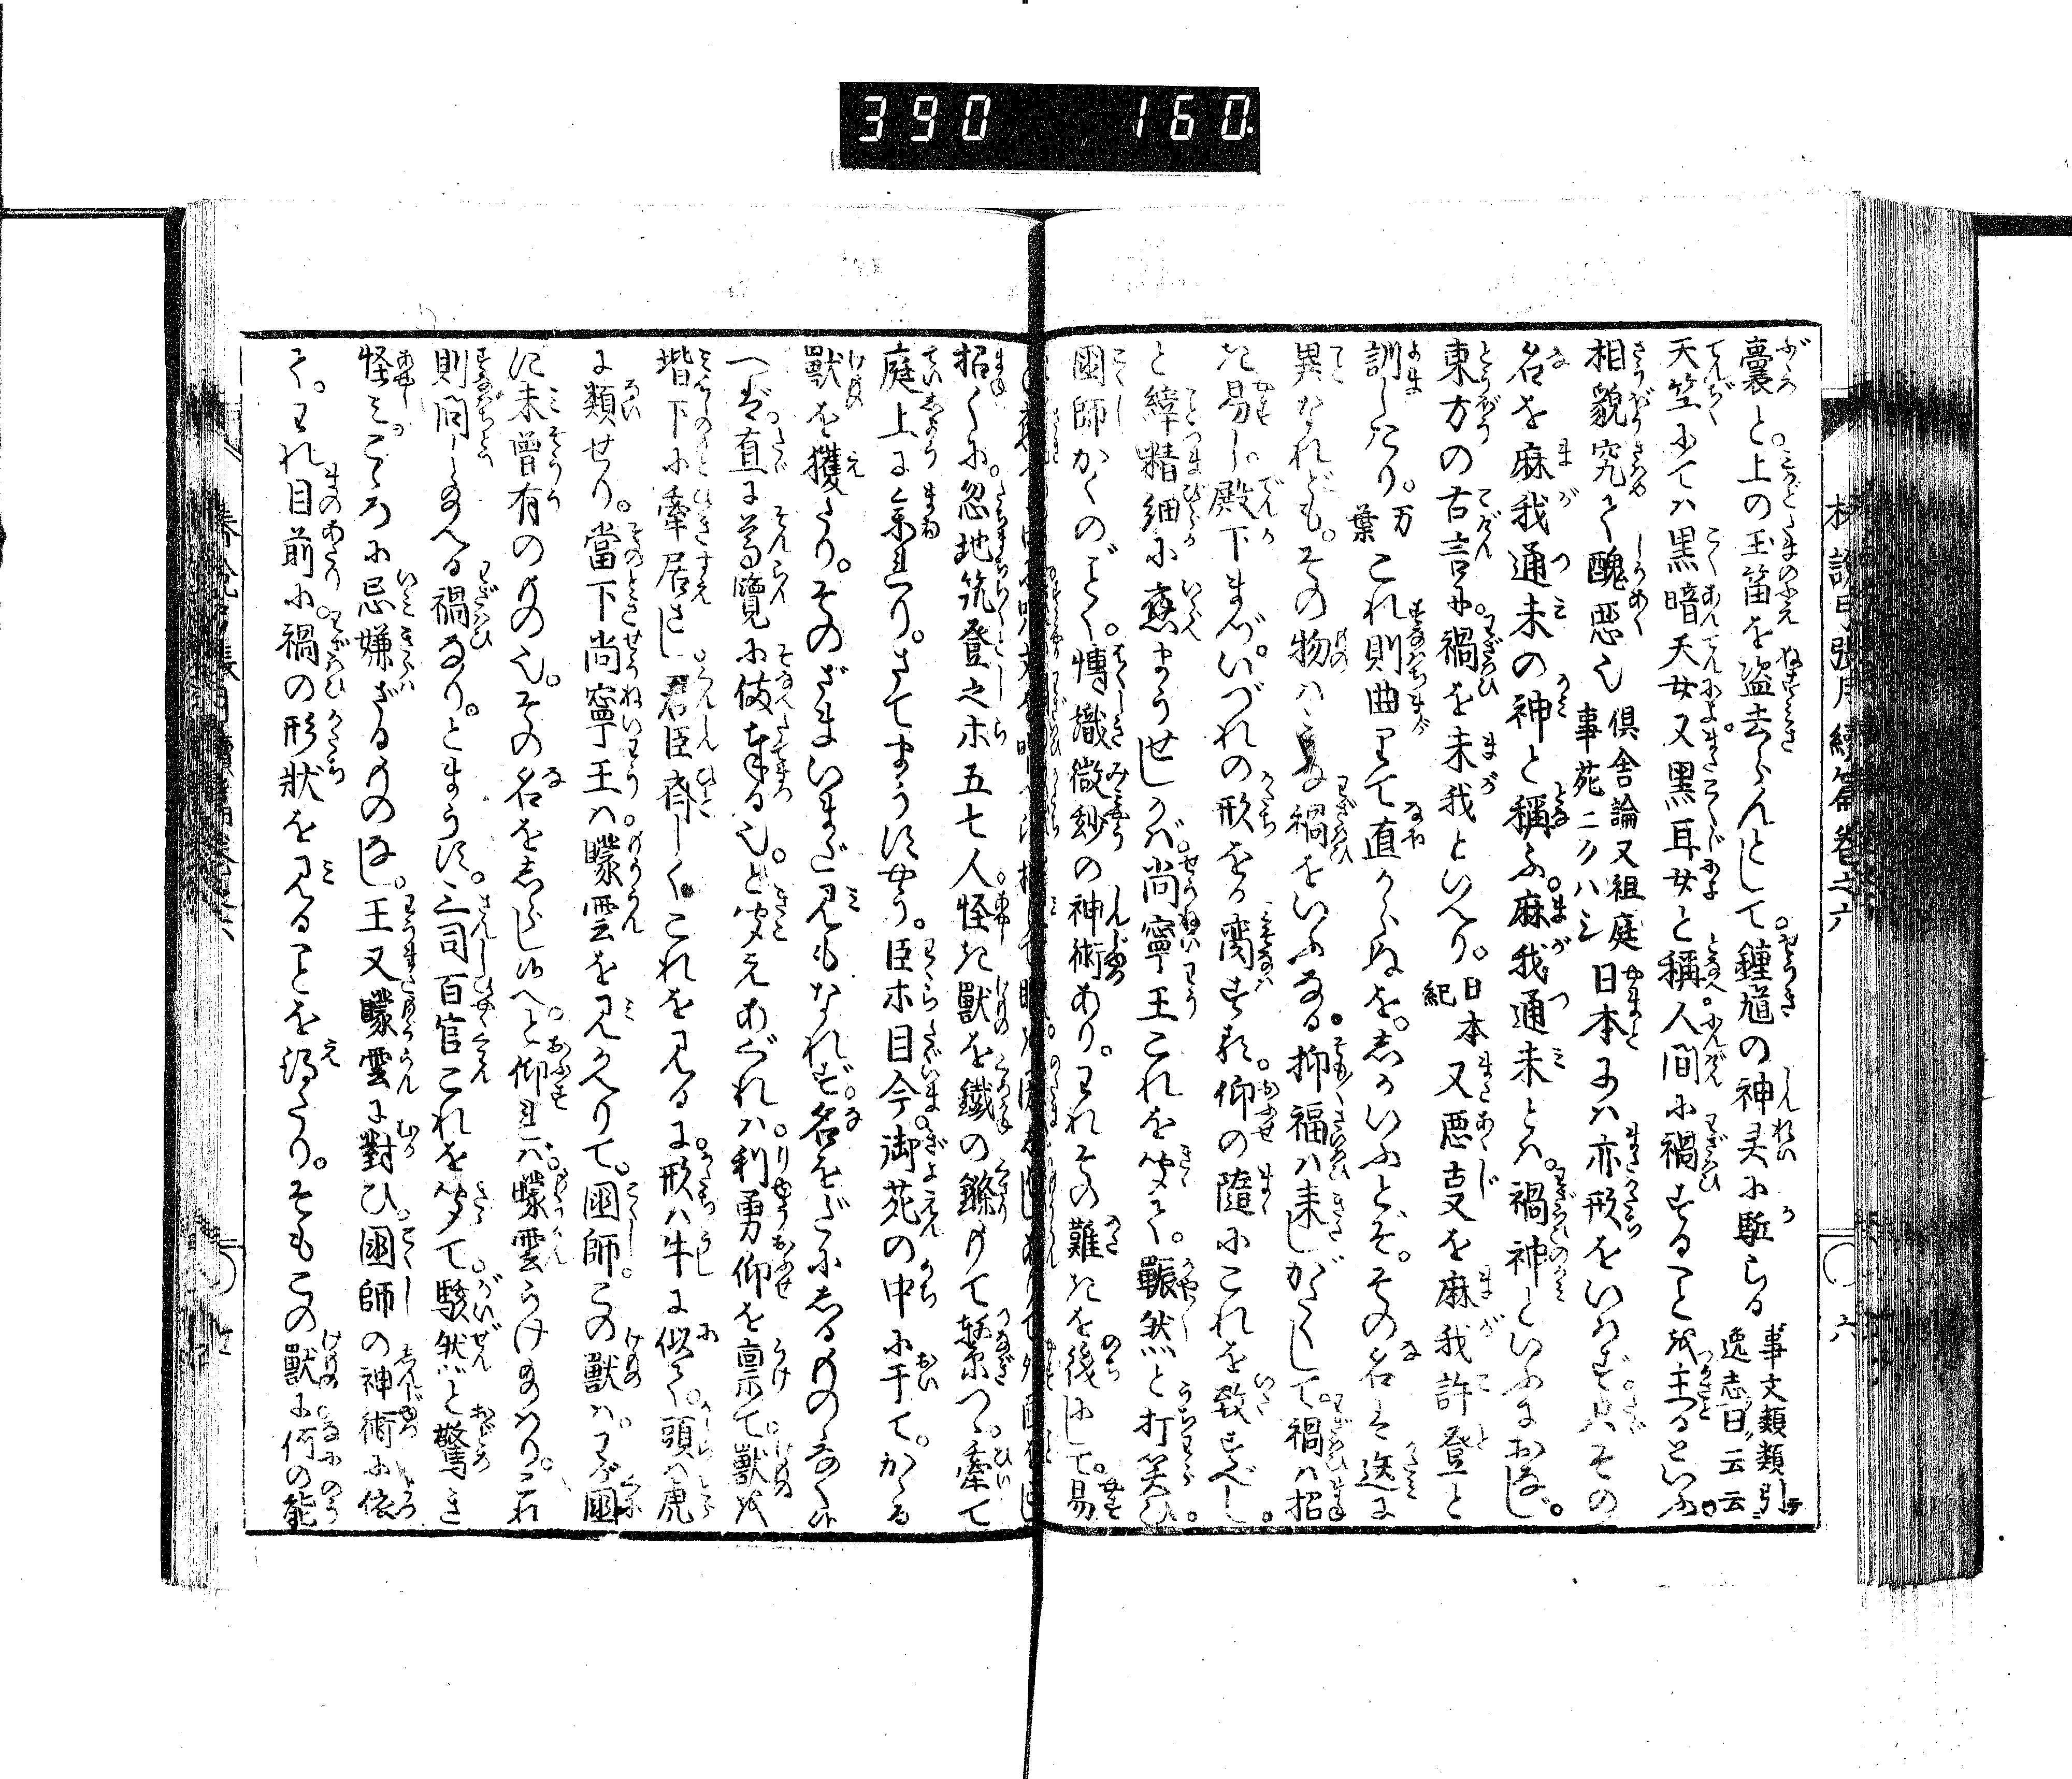 390 160.
椿説弓張月續篇卷之六
嚢と。上の玉笛を盗去らんとして。鍾馗の神灵に駈らる 事文類類引テ逸志曰云云
天竺にてハ黒暗天女又黒耳女と稱人間に禍することを主るといふ
相貌究て醜悪也 倶舎論又祖庭事苑ニクハシ 日本にハ亦形をいはず只その
名を麻我通未の神と稱ふ。麻我通未とハ禍神といふにおなし。
東方の古言に。禍を末我といへり。日本紀 又悪叓を麻我許登と
訓したり。万葉 これ則曲りて直からぬを。志かいふとぞ。その名ハ迭に
異なれども。その物ハ只禍をいふなる。抑福ハ来しがたくして。禍ハ招
き易し。殿下まづ。いづれの形をか閲すや。仰の隨にこれを致すべし
と縡精細に應まうせしかバ。尚寧王これを聞て。囅然と打笑ひ。
國師かくのごとく。博識微妙の神術あり。われその難きを後にして。易
招くに。忽地筑登之ホ五七人。怪き獣を鐵の鏈もて繋つゝ。牽て
庭上に参りたり。さてまうすやう。臣ホ目今。御苑の中に于て。かゝる
獣を獲たり。そのざまいまだ見もなれず。名をだにしるものゝなく候
へバ。直に尊覧に備奉る也。と聞えあぐれハ。利勇仰を禀て。獣を
堦下に牽居さし。君臣齊しくこれを見るに。形ハ牛に似て。頭ハ虎
に類せり。當下尚寧王ハ。矇雲を見かへりて。國師。この獣ハ。わが國
に未曾有のもの也。その名をしらし候へと仰すれバ。矇雲うけ給ハり。これ
則問し給へる禍なり。とまうす。三司百官これを聞て。駭然と驚き
怪み。こゝろに忌嫌ざるものなし。王又矇雲に對ひ。國師の神術に依
て。われ目前に。禍の形状を見ることを得たり。そもこの獣に何の能